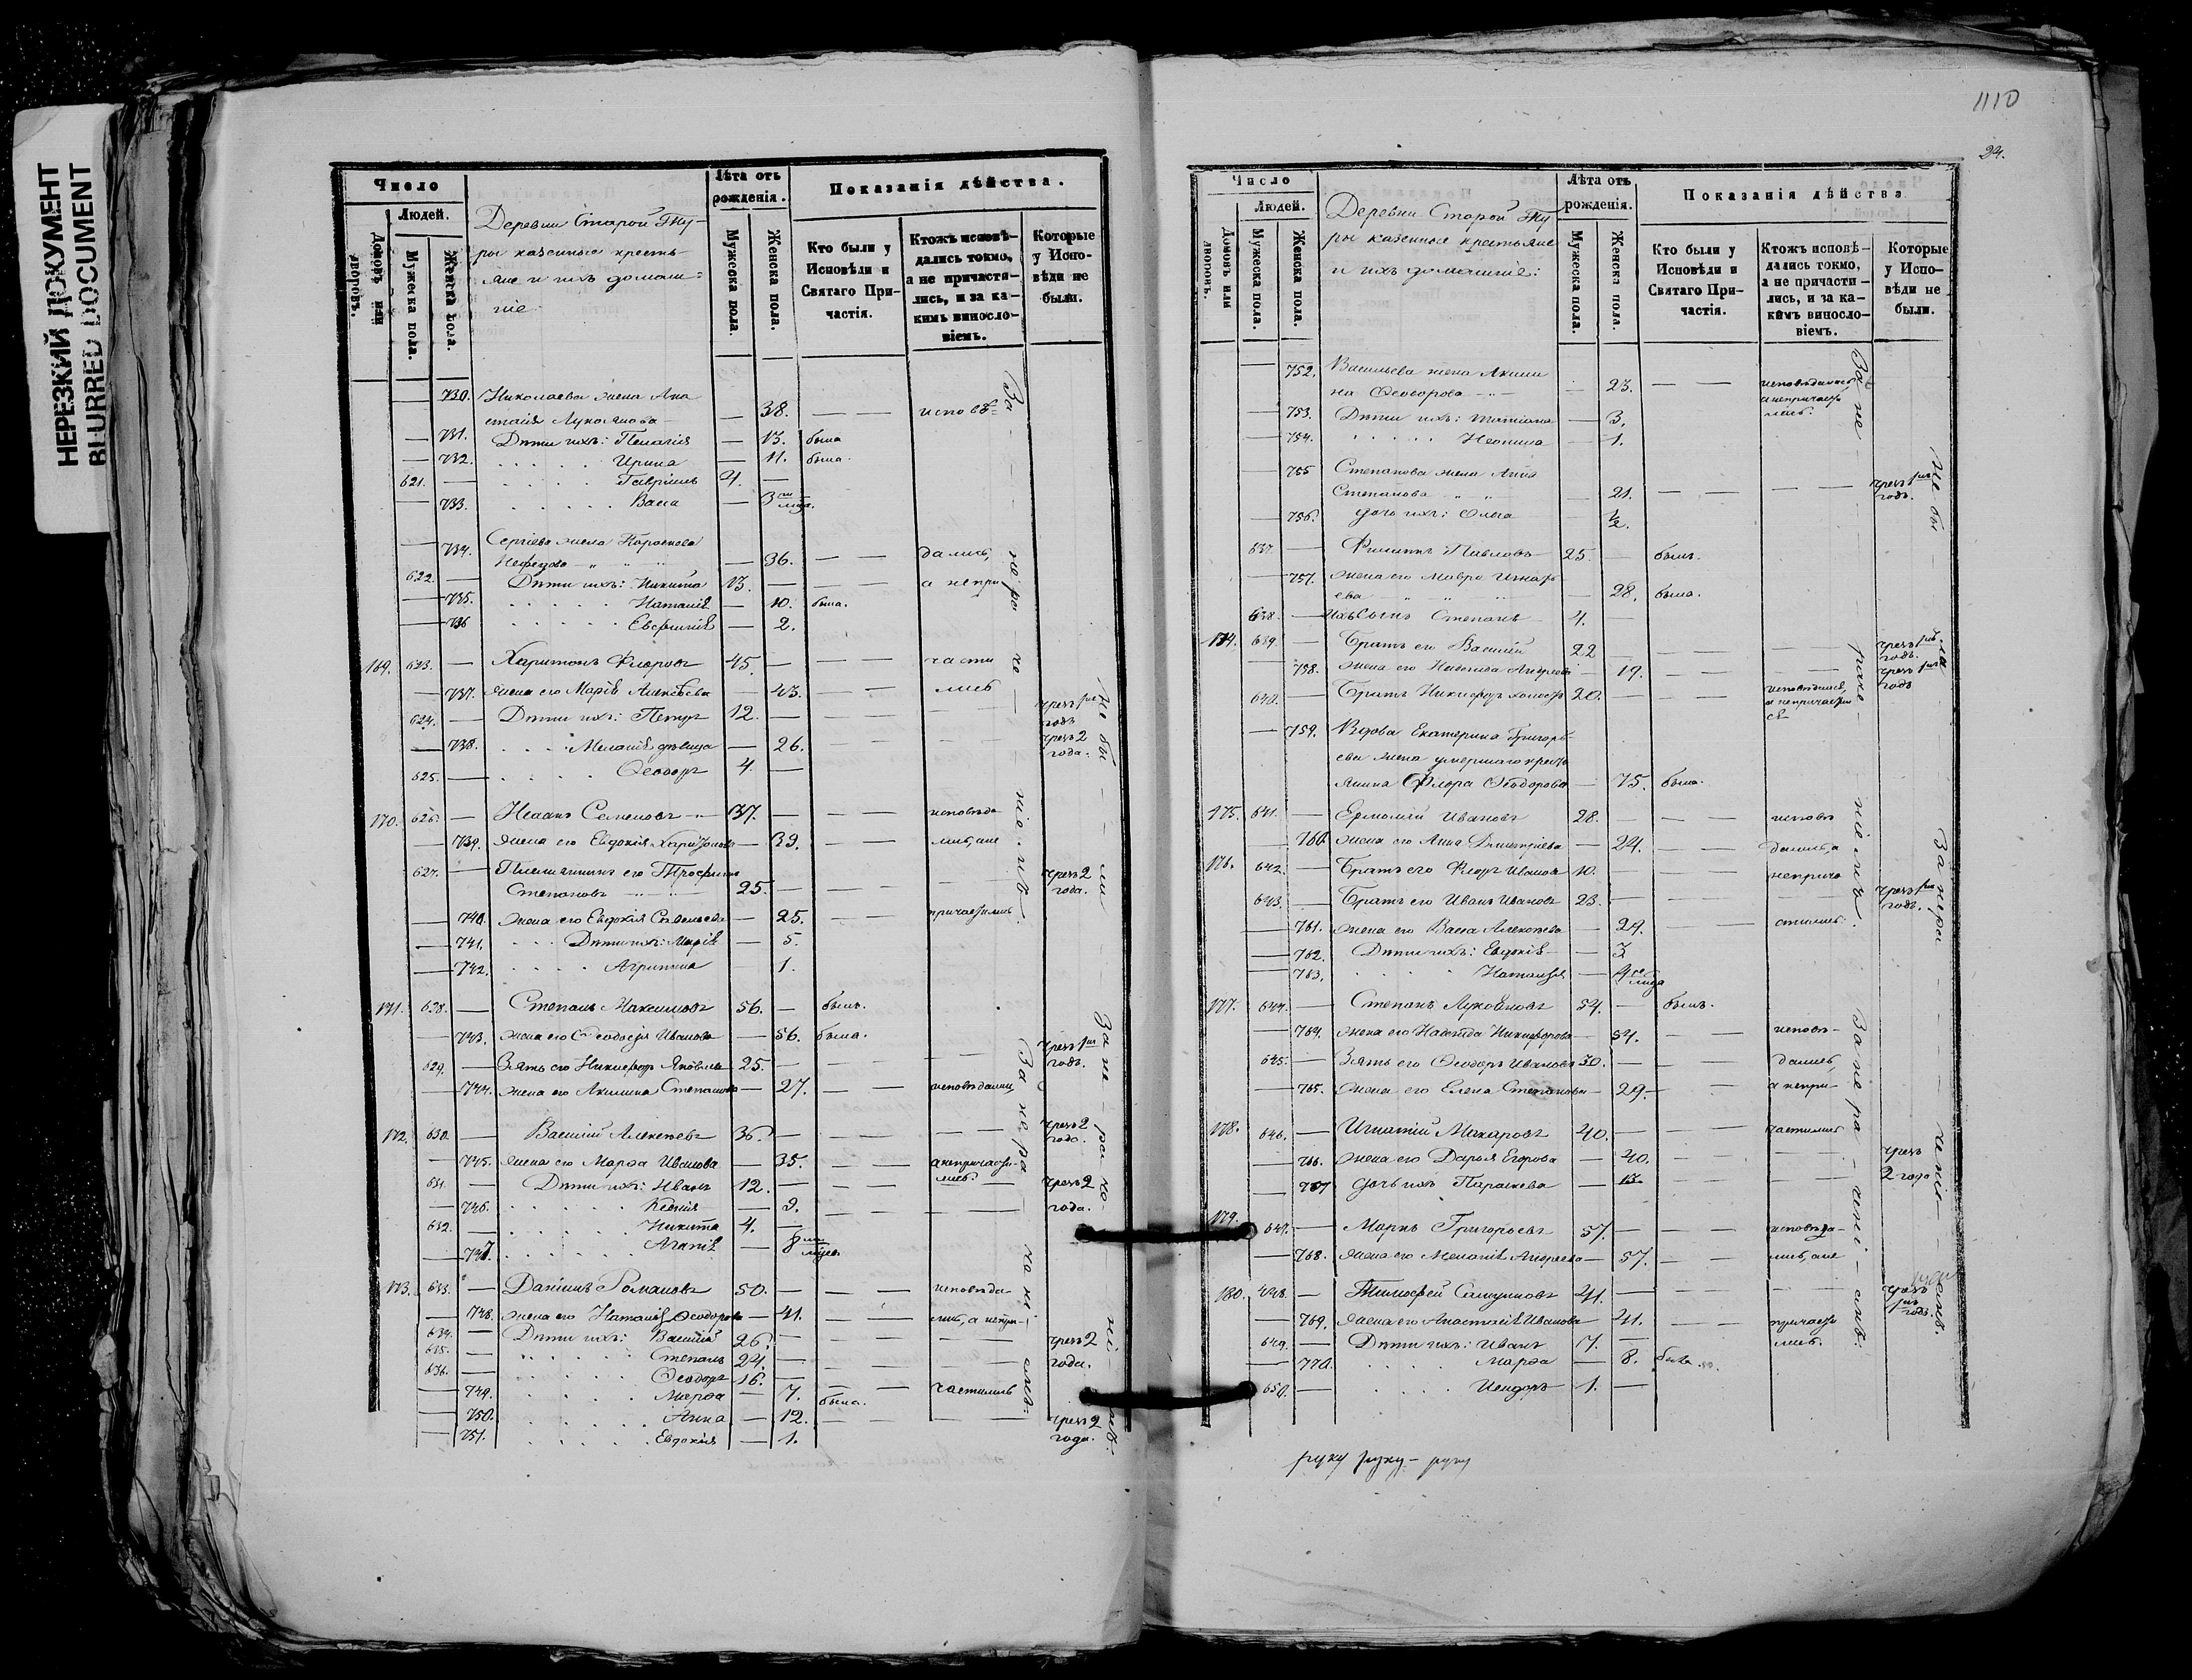 НЕРЕЗКИЙ ДОКУМЕНТ
BLURRED DOCUMENT
Число
Людей.
Домовъ или дворовъ.
Мужеска пола.
Женска пола.
Деревни Старой Тю-
ры казенные кресть-
яне и ихъ домаш-
ніе
Лѣта отъ рожденія.
Мужеска пола.
Женска пола.
Показанія дѣйства.
Кто были у Исповѣди и Святаго При-частія.
Ктожъ исповѣ-дались токмо, а не причасти-лись, и за ка-кимъ винословіемъ.
Которые у Испо-вѣди не были.
730. Николаева жена Ана
стасія Лукоянова — 38. — — исповѣ-
731. Дѣти ихъ: Пелагія — 13. была
732. Ирина — 11. была.
621. — Гавріилъ 4. —
733. Васса — 3
734. Сергіева жена
Нефедова — 36. — — дались,
622. — Дѣти ихъ: Никита 13. — а непри
735. Наталія — 10. была.
736 Евфимія — 2.
169. 623. — Харитонъ Флоровъ 45. — — — части
737. жена его Марія Алексѣева — 43. — — лись
624. — Дѣти ихъ: Петръ 12. — чрезъ 1 годъ
738. Меланія дѣвица — 26. чрезъ 2 года.
625. — Ѳеодоръ 4. —
170. 626. — Иванъ Семеновъ 37. — — — исповѣда
739. жена его Евдокія Харитонова — 39. — — лись, а не
627. — Племянникъ его Трофимъ
Степановъ 25. — — — чрезъ 2 года.
740. жена его Евдокія Савельева — 25. — — причастились
741. Дѣти ихъ: Марія — 5.
742. Агрипина — 1.
171. 628. — Степанъ Максимовъ 56. — былъ.
743. жена его Ѳеодосія Иванова — 56. была.
629. — Зять его Никифоръ Яковлевъ 25. — чрезъ 1 годъ.
744. жена его Акилина Степанова — 27. — исповѣдались,
172. 630. — Василій Алексѣевъ 36. — — — чрезъ 2 года.
745. жена его Марѳа Иванова — 35. — — а непричасти-
лись.
631. — Дѣти ихъ: Иванъ 12. — — — чрезъ 2
746. Ксенія — 9. — — года.
632. — Никита 4. —
747. Агапія — 8
173. 633. — Даніилъ Романовъ 50. — — — исповѣда
748. жена его Наталія Ѳеодорова — 41. — лись, а непри-
634. — Дѣти ихъ: Василій 26. — — — чрезъ 2
635. — Степанъ 24. — — — года.
636. — Ѳеодоръ 16. —
749. Марѳа — 7. была. частились
750. Анна — 12. — — чрезъ 2
751. Евдокія — 1. года.
За не ра че ні емъ.
Не бы ли
За не ра че ні емъ.
1110
24.
Число
Людей.
Домовъ или дворовъ.
Мужеска пола.
Женска пола.
Деревни Старой Тю
ры казенные крестьяне
и ихъ домашніе:
Лѣта отъ рожденія.
Мужеска пола.
Женска пола.
Показанія дѣйства
Кто были у Исповѣди и Святаго При-частія.
Ктожъ исповѣ-дались токмо, а не причасти-лись, и за ка-кимъ винословіемъ.
Которые у Испо-вѣди не были.
752. Васильева жена Акили
на Ѳеодорова — 23. — — исповѣдалась
а непричасти
лись.
753. Дѣти ихъ: Татіана — 3.
754. Неонила — 1.
755 Степанова жена Анна
Степанова — 21. — — — — чрезъ 1 годъ.
756. дочь ихъ: Ольга — ½.
637. — Филиппъ Павловъ 25. — былъ.
757. жена его Мавра Игнать
ева — 28. была.
638. — Ихъ Сынъ Степанъ 4. —
174. 639. — Братъ его Василій 22 — чрезъ 1 годъ.
758. жена его Надежда — 19. чрезъ 1 годъ
640. — Братъ Никифоръ холостъ 20. — — исповѣдался,
а непричастил
ся
759. Вдова Екатерина Григорь-
ева жена умершаго кресть
янина Флора Ѳеодорова — 75. была.
175. 641. — Ермолай Ивановъ 28. — исповѣ
760. жена его Анна Дмитріева — 24. — дались, а
176. 642. — Братъ его Флоръ Ивановъ 10. — неприча
643. — Братъ его Иванъ Ивановъ 23. — чрезъ 1 годъ.
761. жена его Васса Алексѣева — 24. — стились.
762. Дѣти ихъ: Евдокія — 3
763. Наталія — 9
177. 644. — Степанъ Лукояновъ 54. — былъ.
764. жена его Надежда Никифорова — 54. — исповѣ-
645. — Зять его Ѳеодоръ Ивановъ 30. — дались,
765. жена его Елена Степанова — 29. — а непри-
178. 646. — Игнатій Макаровъ 40. — — — частились
766. жена его Дарья Егорова — 40. — — чрезъ
767 дочь ихъ Параскева — 13. — — 2 года
179. 647. — Маркъ Григорьевъ 57. — — — исповѣда-
768. жена его Меланія Андреева — 57. — — лись, а не
180. 648. — Тимофей 41. — — — чрезъ 1 годъ.
769. жена его Анастасія Иванова — 41. — — причасти
649. — Дѣти ихъ: Иванъ 7. — лись.
770. Марѳа — 8. была
650. — Исидоръ 1. —
За не ра че ні емъ.
Не бы ли
За нера че ніемъ.
За не ра че ні емъ.
руку руку — руку